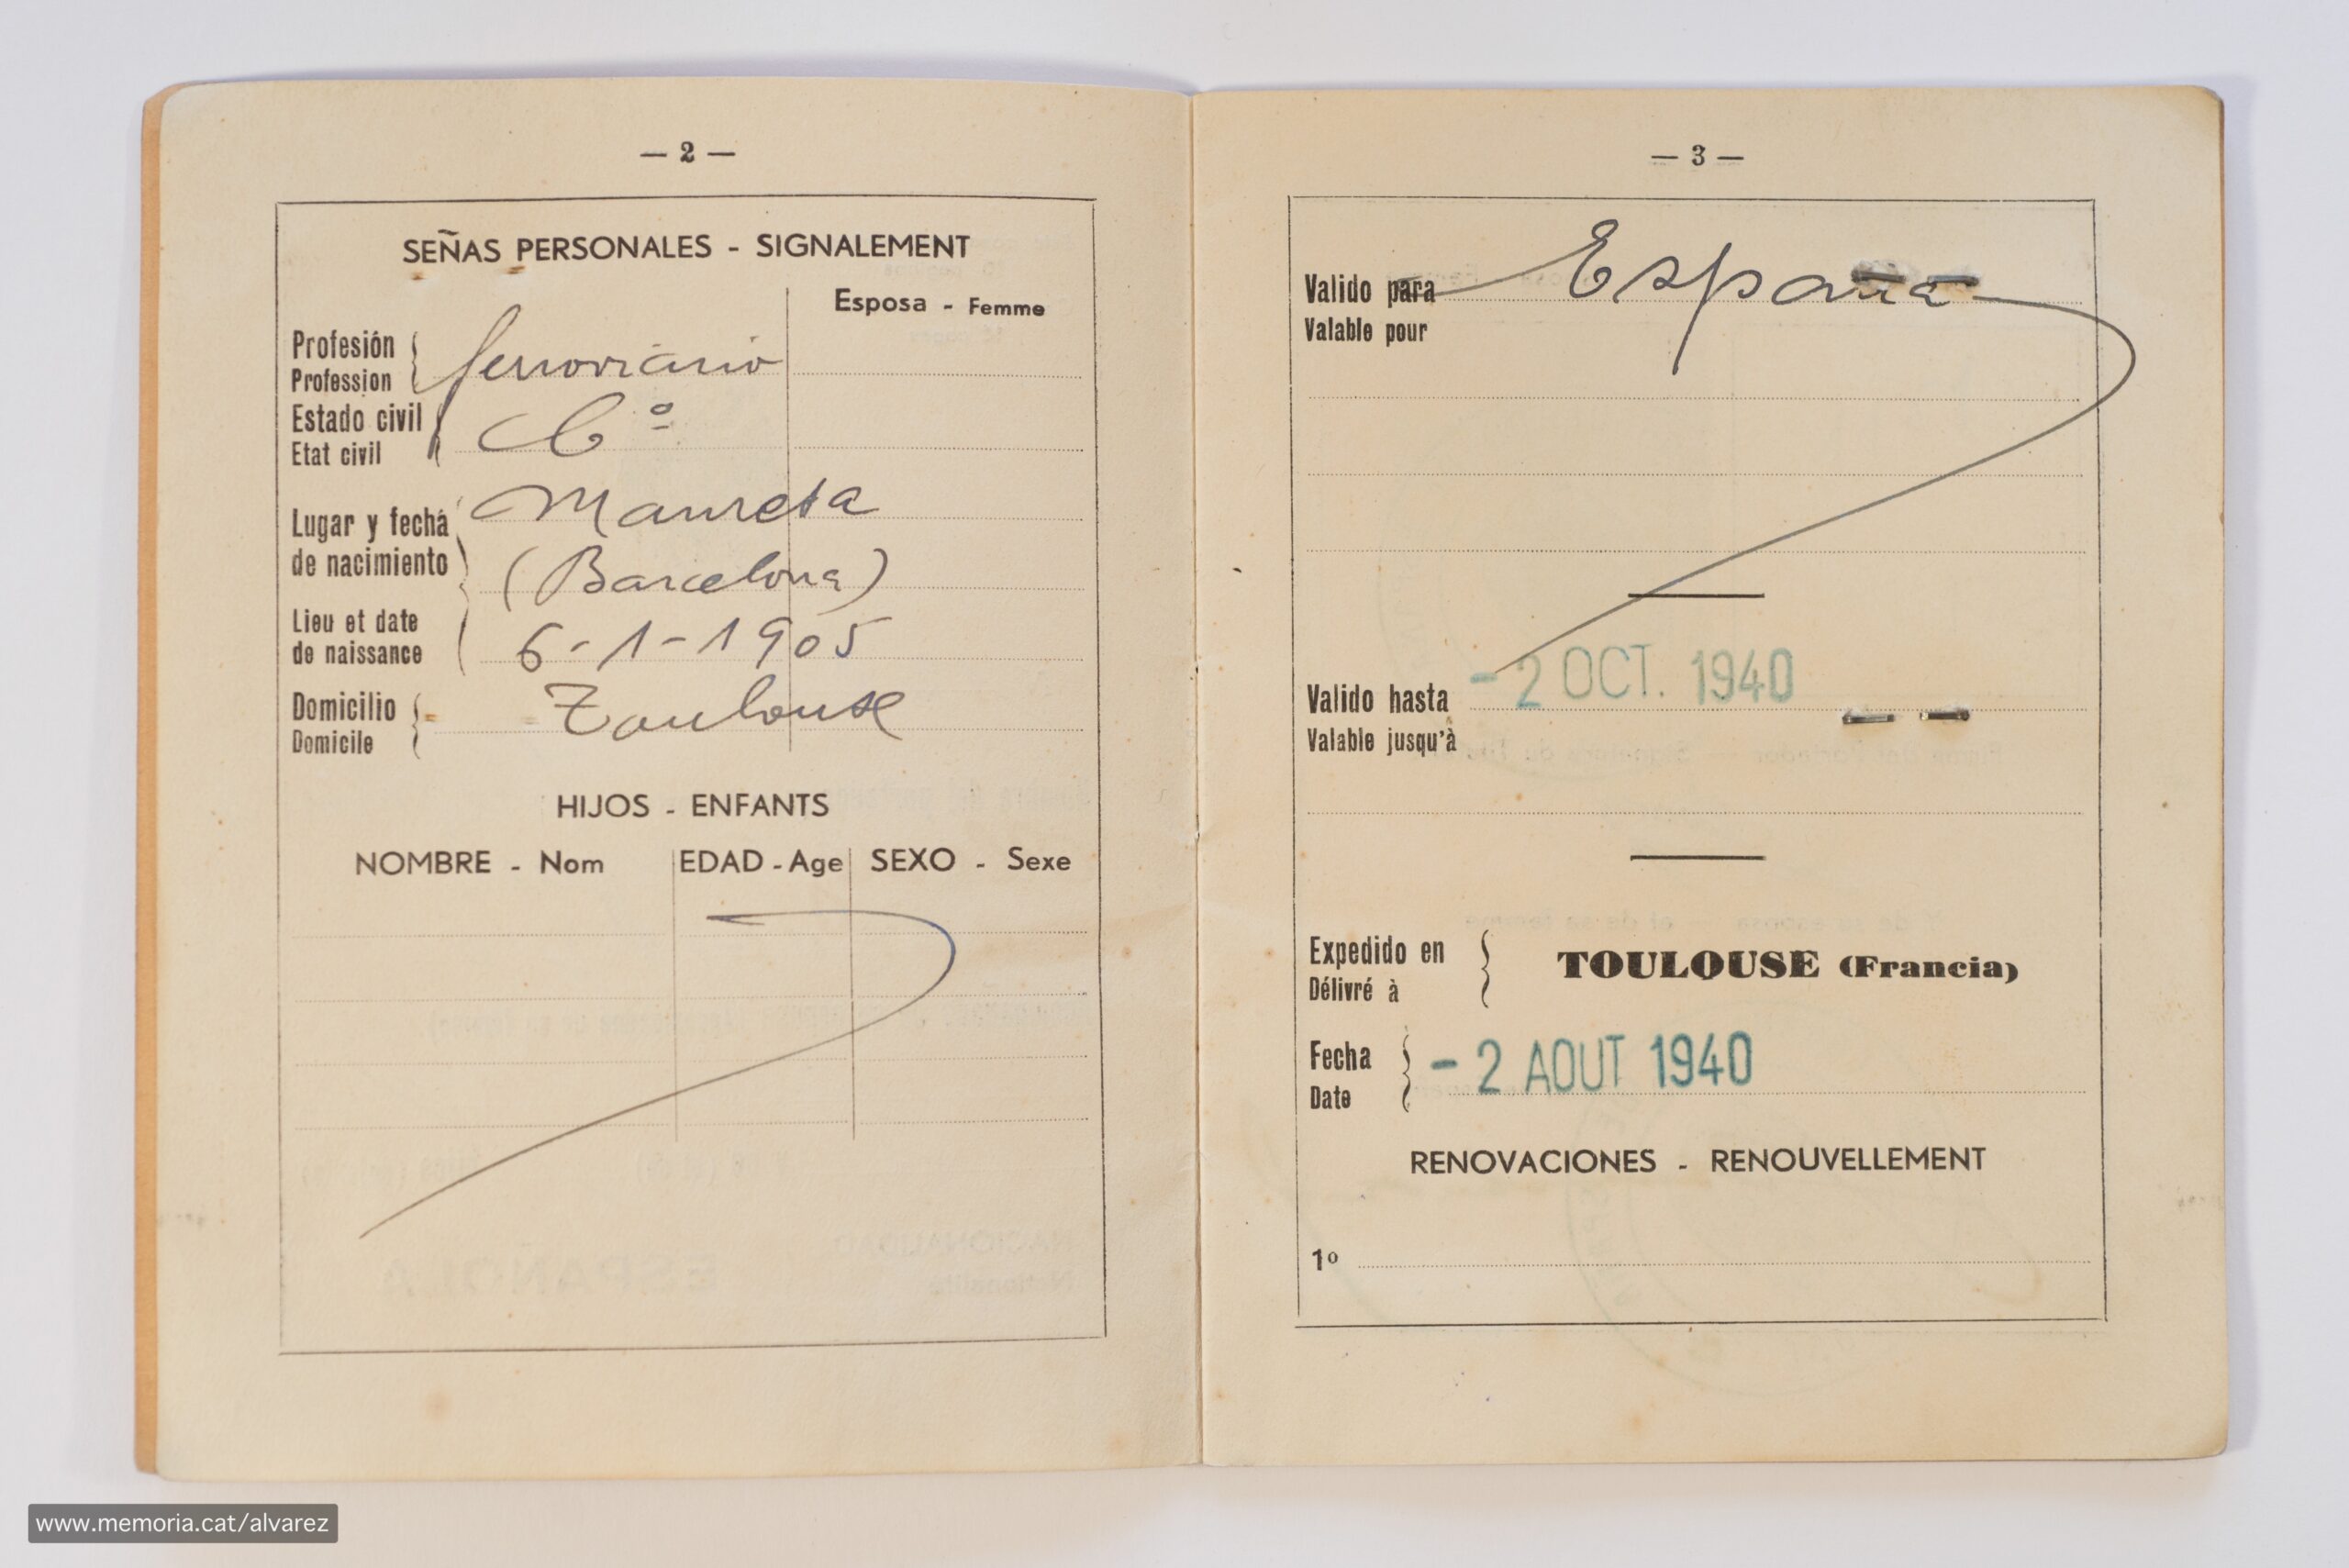 — 2 —
SEÑAS PERSONALES - SIGNALEMENT
Esposa - Femme
Profesión
Profession
ferroviario
Estado civil
Etat civil
Cº
Lugar y fecha
de nacimiento
Manresa
(Barcelona)
Lieu et date
de naissance
6-1-1905
Domicilio
Domicile
Toulouse
HIJOS - ENFANTS
NOMBRE - Nom EDAD - Age SEXO - Sexe
— 3 —
Valido para España
Valable pour
Valido hasta - 2 OCT. 1940
Valable jusqu'à
Expedido en
Délivré à
TOULOUSE (Francia)
Fecha
Date
- 2 AOUT 1940
RENOVACIONES - RENOUVELLEMENT
1º
www.memoria.cat/alvarez